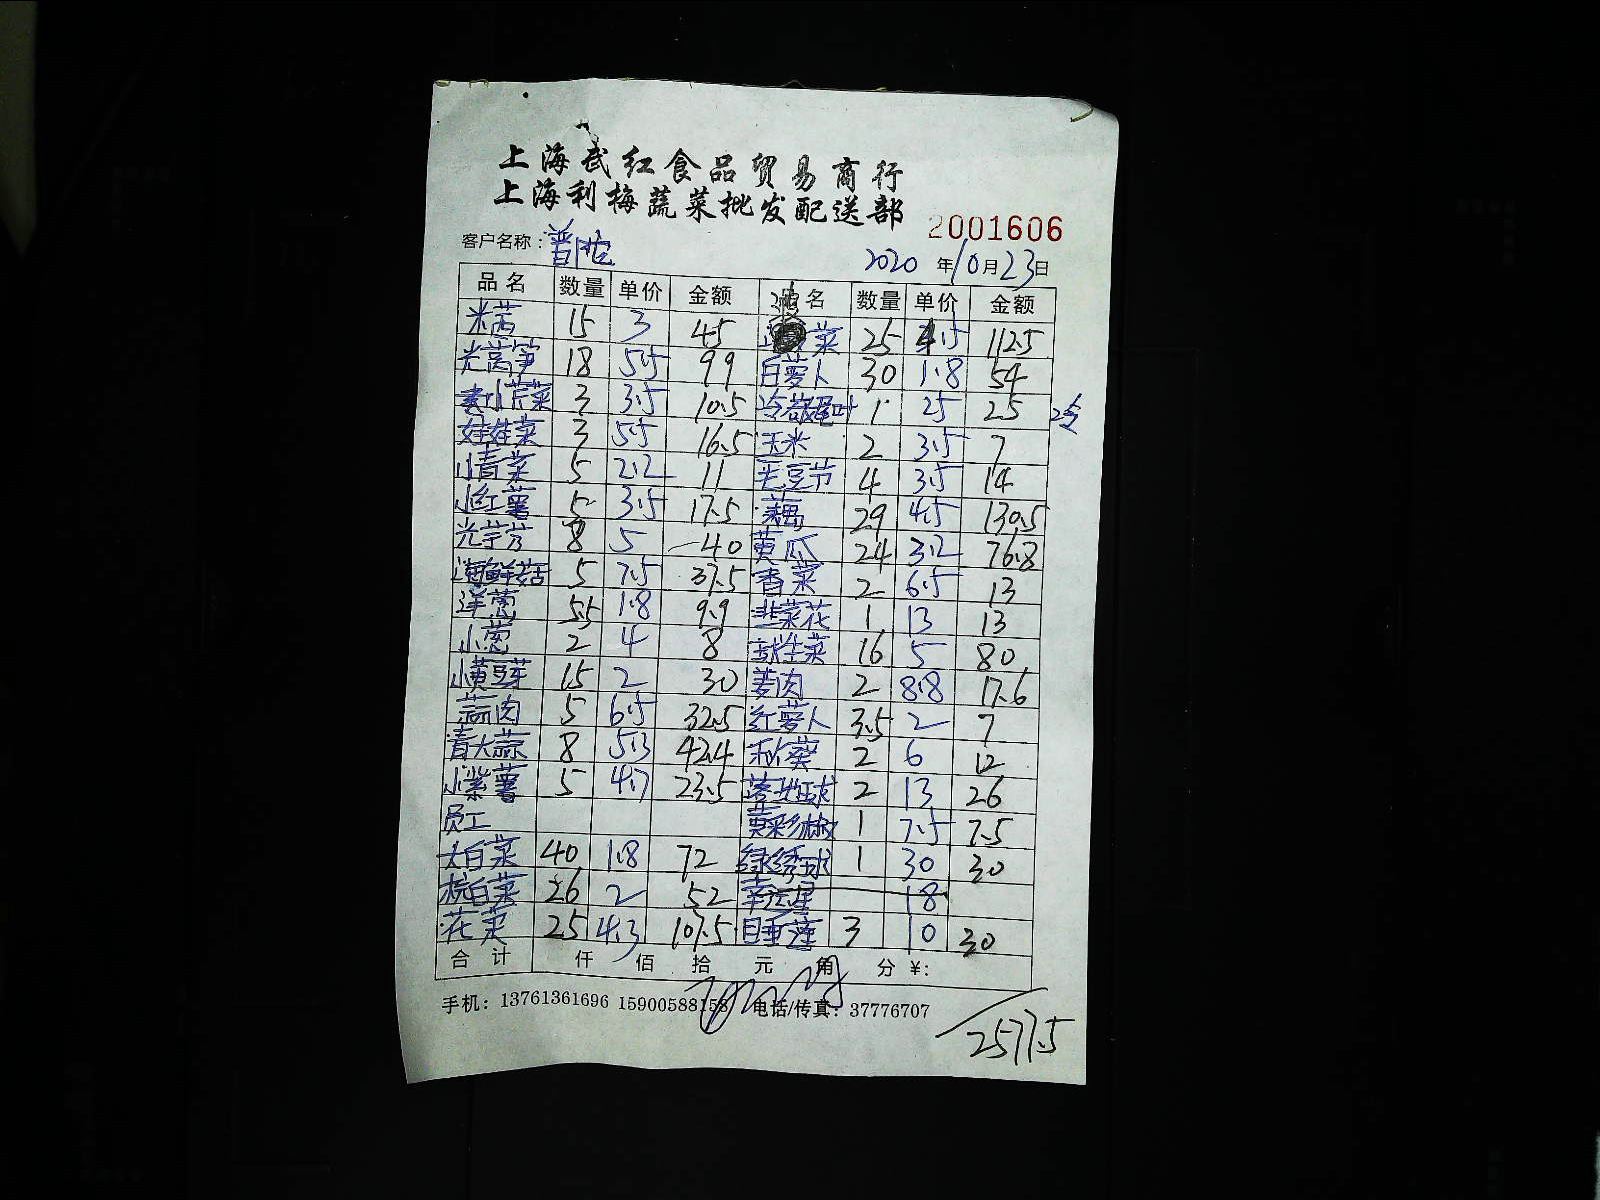 上海武红食品贸易商行
上海利梅蔬菜批发配送部
2001606
客户名称：普陀 2020年10月23日
品名 数量 单价 金额 名 数量 单价 金额
米苋 15 3 45 菜 25 4.5 112.5
光莴笋 18 5.5 99 白萝卜 30 1.8 54
小芹菜 3 3.5 10.5 冷 1 25 25
娃娃菜 3 5.5 16.5 玉米 2 3.5 7
小青菜 5 2.2 11 毛豆节 4 3.5 14
小红薯 5 3.5 17.5 藕 29 4.5 130.5
光芋艿 8 5 40 黄瓜 24 3.2 76.8
海鲜菇 5 7.5 37.5 香菜 2 6.5 13
洋葱 5.5 1.8 9.9 韭菜花 1 13 13
小葱 2 4 8 生菜 16 5 80
小黄豆芽 15 2 30 姜肉 2 8.8 17.6
蒜肉 5 6.5 32.5 红萝卜 3.5 2 7
青大蒜 8 5.3 42.4 秋葵 2 6 12
小紫薯 5 4.7 23.5 球 2 13 26
员工 黄彩椒 1 7.5 7.5
大白菜 40 1.8 72 绿绣球 1 30 30
杭白菜 26 2 52 幸运星 18
花菜 25 4.3 107.5 睡莲 3 10 30
合计 仟 佰 拾 元 角 分 ¥:
手机：13761361696 15900588158 电话/传真：37776707
2577.5